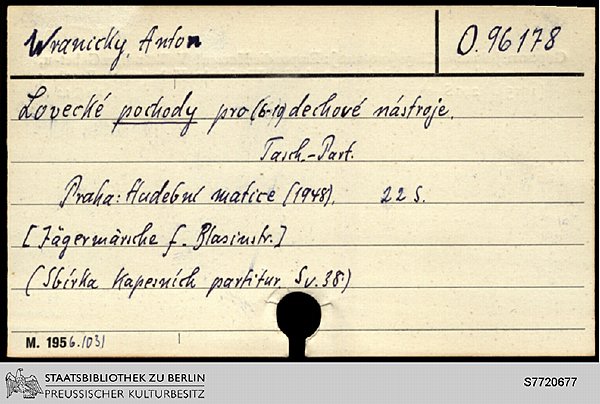 Wranicky, Anton
O.96178
Lovecké pochody pro (6-10) dechové nástroje.
Tasch.-Part.
Praha: Hudební matice (1948). 22 S.
[Jägermärsche f. Blasinstr.]
(Sbírka Kapesních partitur. Sv. 38.)
M. 1956.1031
STAATSBIBLIOTHEK ZU BERLIN
PREUSSISCHER KULTURBESITZ
S7720677